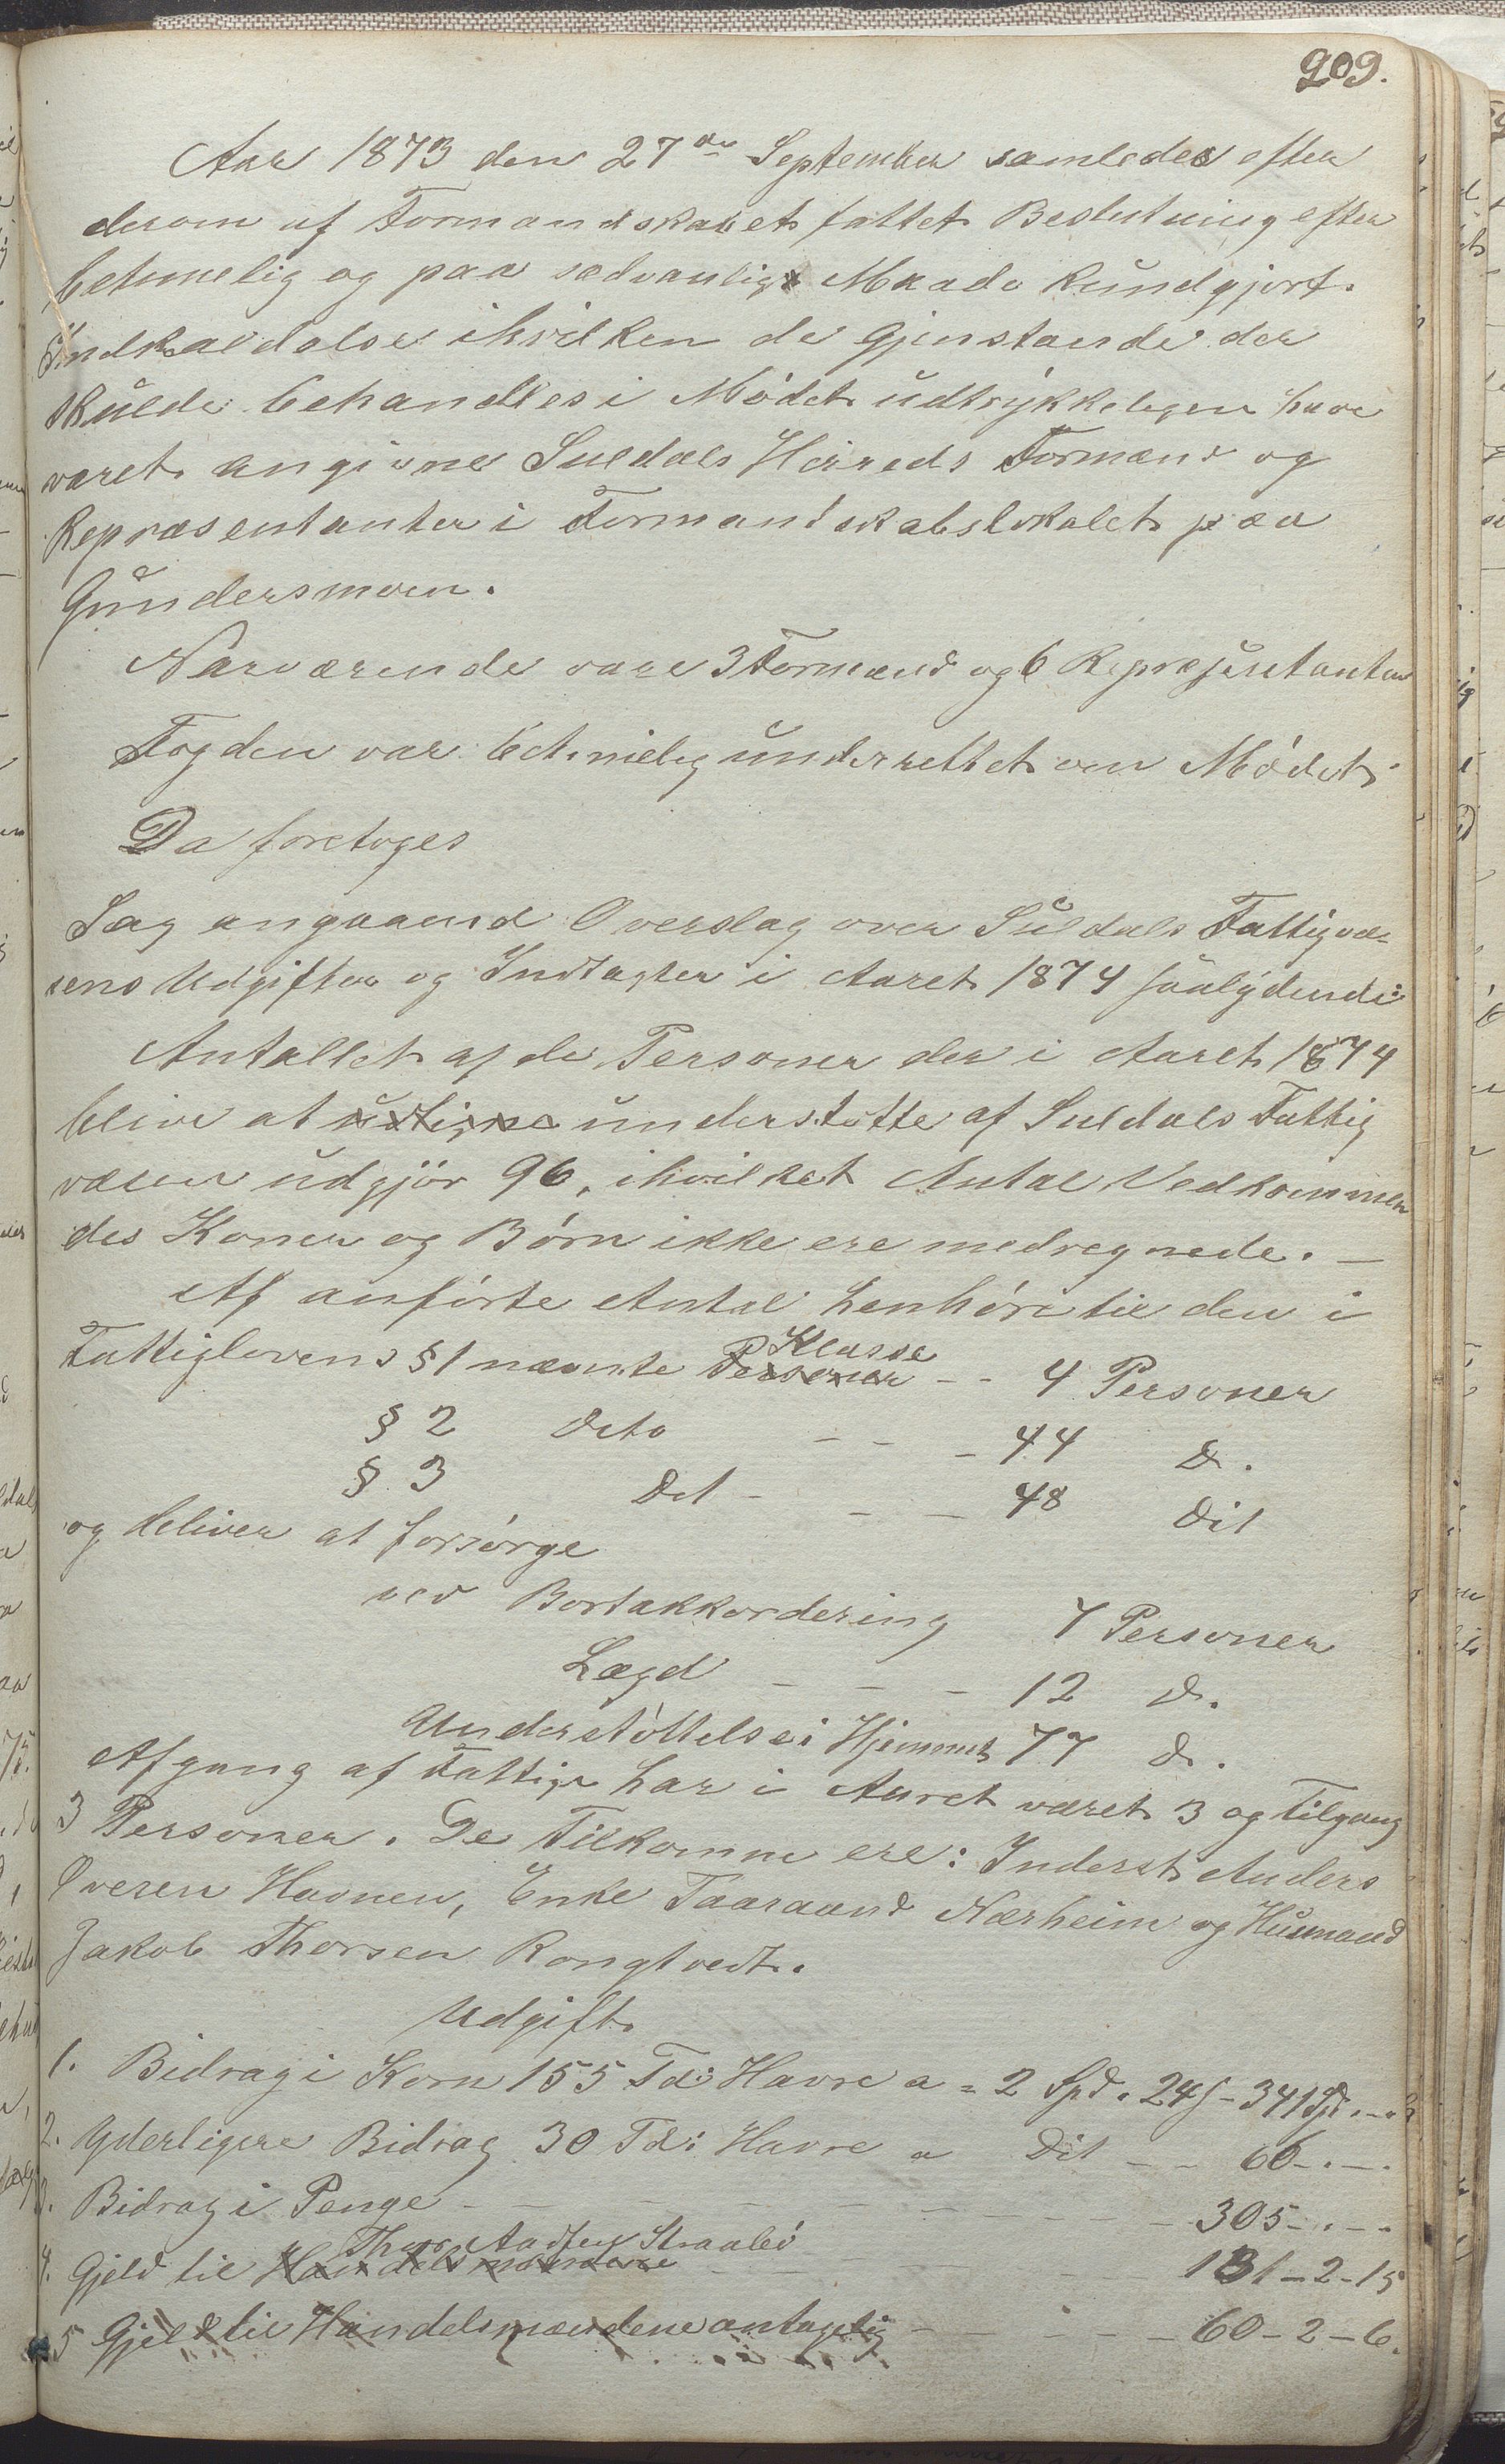 209.
Aar 1873 den 27de September samledes efter
derom af Formandskabet fattet Beslutning efter
betimelig og paa sedvanlig Maade kundgjort
Indkaldelse ihvilken de Gjenstande der
skulde behandles i Mödet udtrykkeligen have
været angivne Suldals Herreds Formænd og
Repræsentanter i Formandskabslokalet paa
Gundersmoen.
Nærværende vare 3 Formænd og 6 Repræsentanter
Fogden var betimelig underrettet om Mödet
Da foretoges
Sag angaaend Overslag over Suldals Fattigvæ-
sens Udgifter og Indtægter i Aaret 1874 saalydende:
Antallet af de Personer der i Aaret 1874
blive at udligne understötte af Suldals Fattig
væsen udgjör 96, ihvilket Antal Vedkommen
des Koner og Börn ikke ere medregnede. —
Af anförte Antal henhöre til den i
Fattiglovens § 1 nævnte Personer Klasse - - 4 Personer
§ 2 Dito - - - 44 D.
§ 3 Dit - - - 48 Dit
og bliver at forsörge
ved Bortakkordering 7 Personer
Lægd - - - 12 D.
Understöttelse i Hjemmet 77 D.
Afgang af Fattige har i Aaret været 3 og Tilgang
3 Personer. De Tilkomne ere: Inderst Anders
Øveren Havnen, Enke Taaraand Nærheim og Husmand
Jakob Thorsen Rongtvedt.
Udgift
1. Bidrag i Korn 155 Td: Havre a = 2 Spd. 24 s - 341 Spd. - -
2. Yderligere Bidrag 30 Td: Havre a Dit - - 66 - . - .
3. Bidrag i Penge - - - - - 305 - . - .
4. Gjeld til Handelsmændene Straabö - - - 131 - 2 - 15
5 Gjeld til Handelsmændene antagelig - - - 60 - 2 - 6.